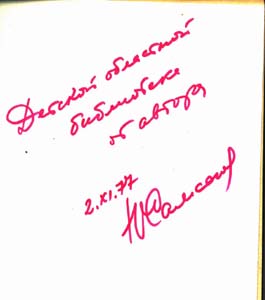 Детской областной
библиотеке
от автора
2.XI.77